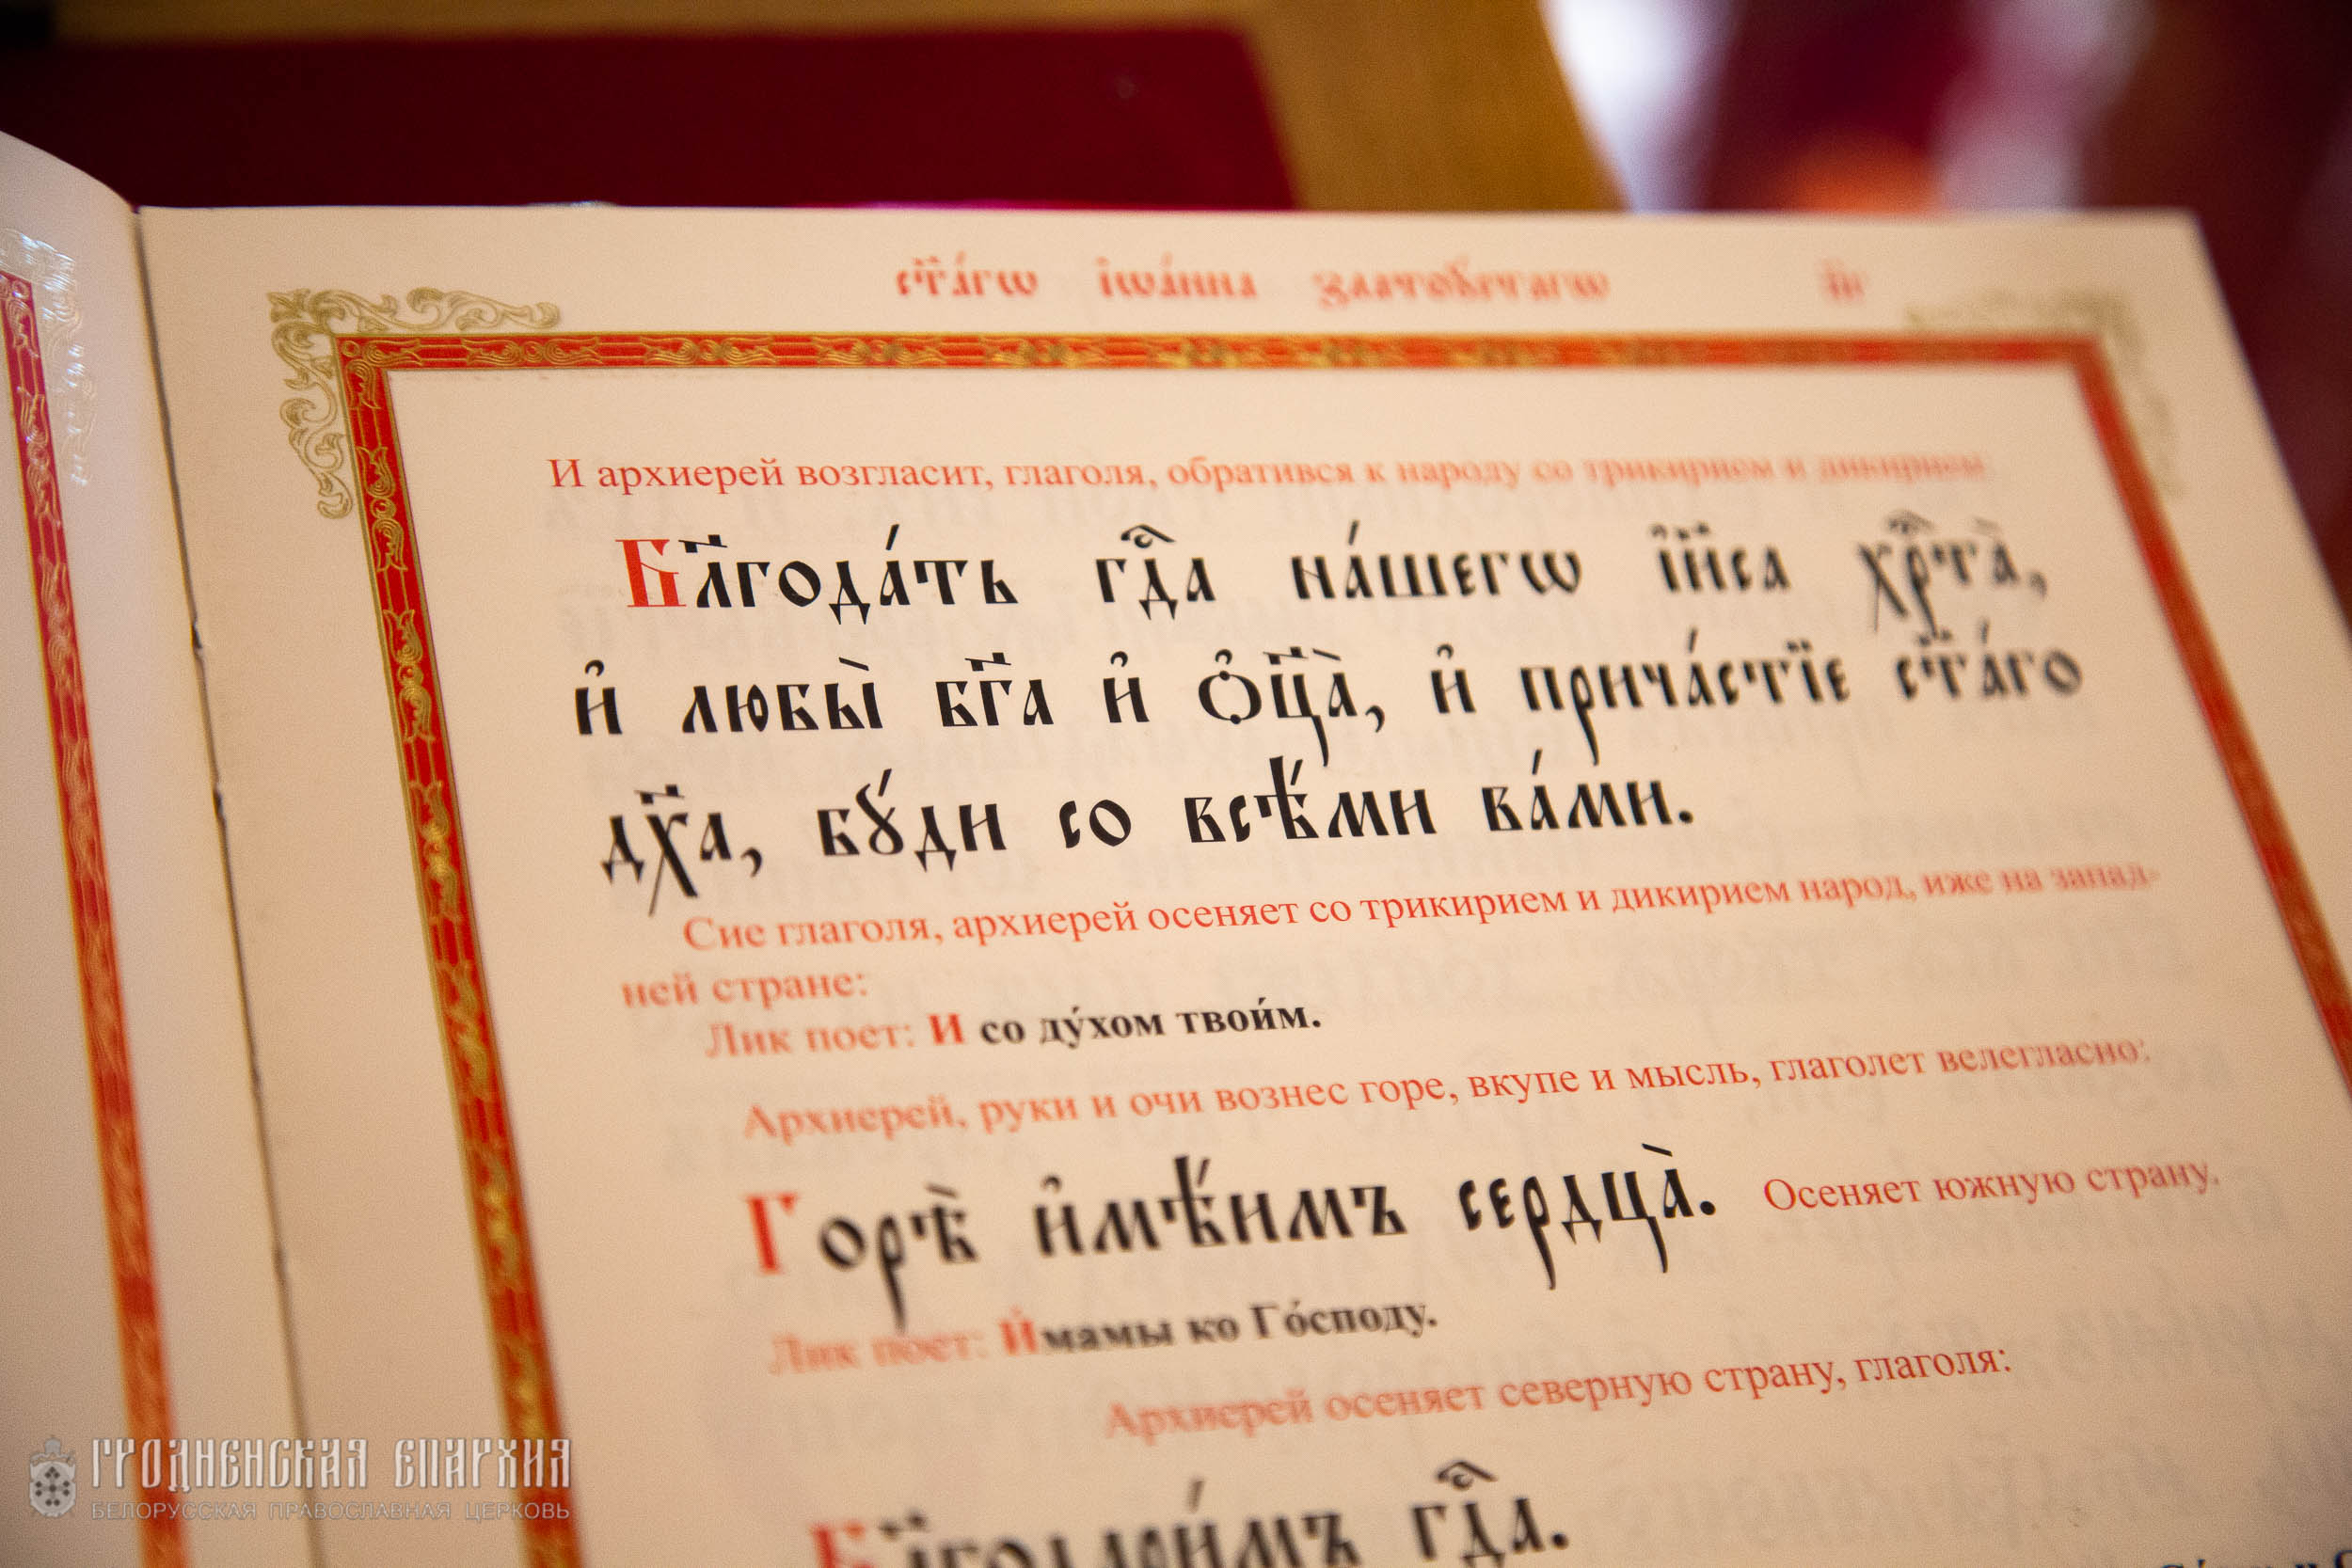 ст҃а́гѡ і҆ѡа́нна златоꙋ́стагѡ
И архиерей возгласит, глаголя, обратився к народу со трикирием и дикирием:
Бл҃года́ть гдⷭ҇а на́шегѡ і҆и҃са хрⷭ҇та̀,
и҆ любы̀ бг҃а и҆ ѻ҆ц҃а̀, и҆ прича́стїе ст҃а́го
дх҃а, бꙋ́ди со всѣ́ми ва́ми.
Сие глаголя, архиерей осеняет со трикирием и дикирием народ, иже на запад-
ней стране:
Лик поет: И со ду́хом твои́м.
Архиерей, руки и очи вознес горе, вкупе и мысль, глаголет велегласно:
Горѣ̀ и҆мѣ́имъ сердца̀. Осеняет южную страну.
Лик поет: И́мамы ко Го́споду.
Архиерей осеняет северную страну, глаголя:
Бл҃годари́мъ гдⷭ҇а.
ГРОДНЕНСКАЯ ЕПАРХИЯ
БЕЛОРУССКАЯ ПРАВОСЛАВНАЯ ЦЕРКОВЬ